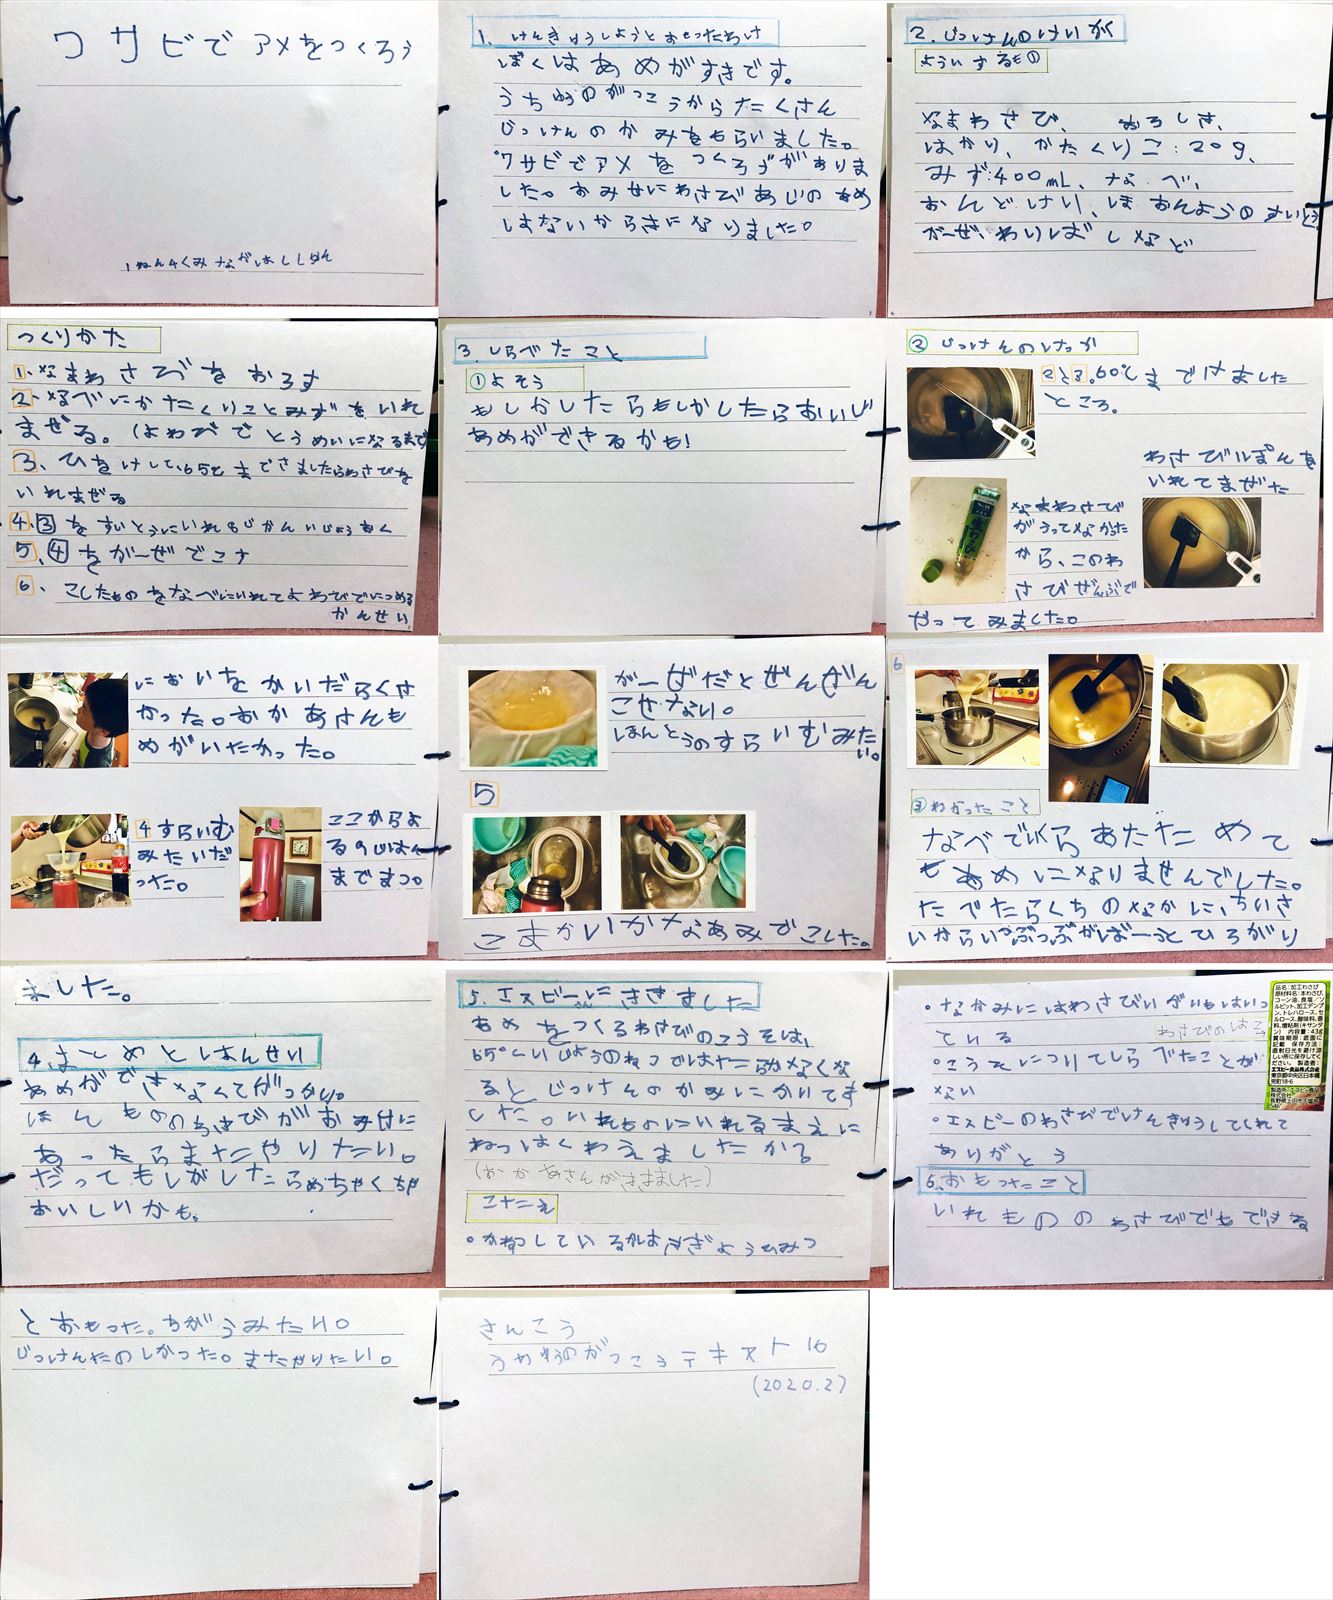 ワサビでアメをつくろう
1ねん4くみ ながはし しもん
1. けんきゅうしようとおもったわけ
ぼくはあめがすきです。
うちゅうのがっこうからたくさん
じっけんのかみをもらいました。
ワサビでアメをつくろうがありま
した。おみせにわさびあじのあめ
はないからきになりました。
2. じっけんのけいかく
よういするもの
なまわさび、 おろしき、
はかり、かたくりこ:20g、
みず:400mL、なべ、
おんどけい、ほおんようのすいとう
がーぜ、わりばしなど
つくりかた
1、なまわさびをおろす
2、なべにかたくりことみずをいれ
まぜる。(よわびでとうめいになるまで
3、ひをけして、65℃までさましたらわさびを
いれまぜる
4、3をすいとうにいれ8じかんいじょうおく
5、4をがーぜでこす
6、こしたものをなべにいれてよわびでにつめる
かんせい
3. しらべたこと
①よそう
もしかしたらもしかしたらおいしい
あめができるかも!
② じっけんのけっか
2と3。60℃までさました
ところ。
わさびいっぽんを
いれてまぜた
なまわさび
がうってなかった
から、このわ
さびぜんぶで
やってみました。
においをかいだらくさ
かった。おかあさんも
めがいたかった。
4 すらいむ
みたいだ
った。
ここからよ
るの
までまつ。
がーぜだとぜんぜん
こせない。
ほんとうのすらいむみた
い。
5
こまかいかなあみでこした。
6
③わかったこと
なべでいくらあたためて
もあめになりませんでした。
たべたらくちのなかに、ちいさ
いからいつぶつぶがばーっとひろがり
ました。
4. まとめとはんせい
あめができなくてがっかり。
ほんもののわさびがおみせに
あったらまたやりたい。
だってもしかしたらめちゃくちゃ
おいしいかも。
5. エスビーさんにききました
あめをつくるわさびのこうそは、
65℃いじょうのねつではたらかなくな
るとじっけんのかみにかいてま
した。いれものにいれるまえに
ねっはくわえましたか?
(おかあさんがききました)
こたえ
・かねつしているかはきぎょうひみつ
・なかみにはわさびいがいもはいっ
ている
わさびのはこ→
・こうそについてしらべたことが
ない
・エスビーのわさびでけんきゅうしてくれて
ありがとう
品名:加工わさび
原材料名:本わさび、
コーン油、食塩/ソ
ルビット、加工デンプ
ン、トレハロース、セ
ルロース、酸味料、香
料、増粘剤(キサンタ
ン) 内容量:43g
賞味期限:底面に
記載 保存方法:
直射日光を避け涼
しい所に保存してく
ださい。 製造者:
エスビー食品株式会社
東京都中央区日本橋
兜町18-6
製造所:エスビー食品
株式会社
6. おもったこと
いれもののわさびでもできる
とおもった。ちがうみたい。
じっけんたのしかった。またやりたい。
さんこう
うちゅうのがっこうテキスト16
(2020.2)